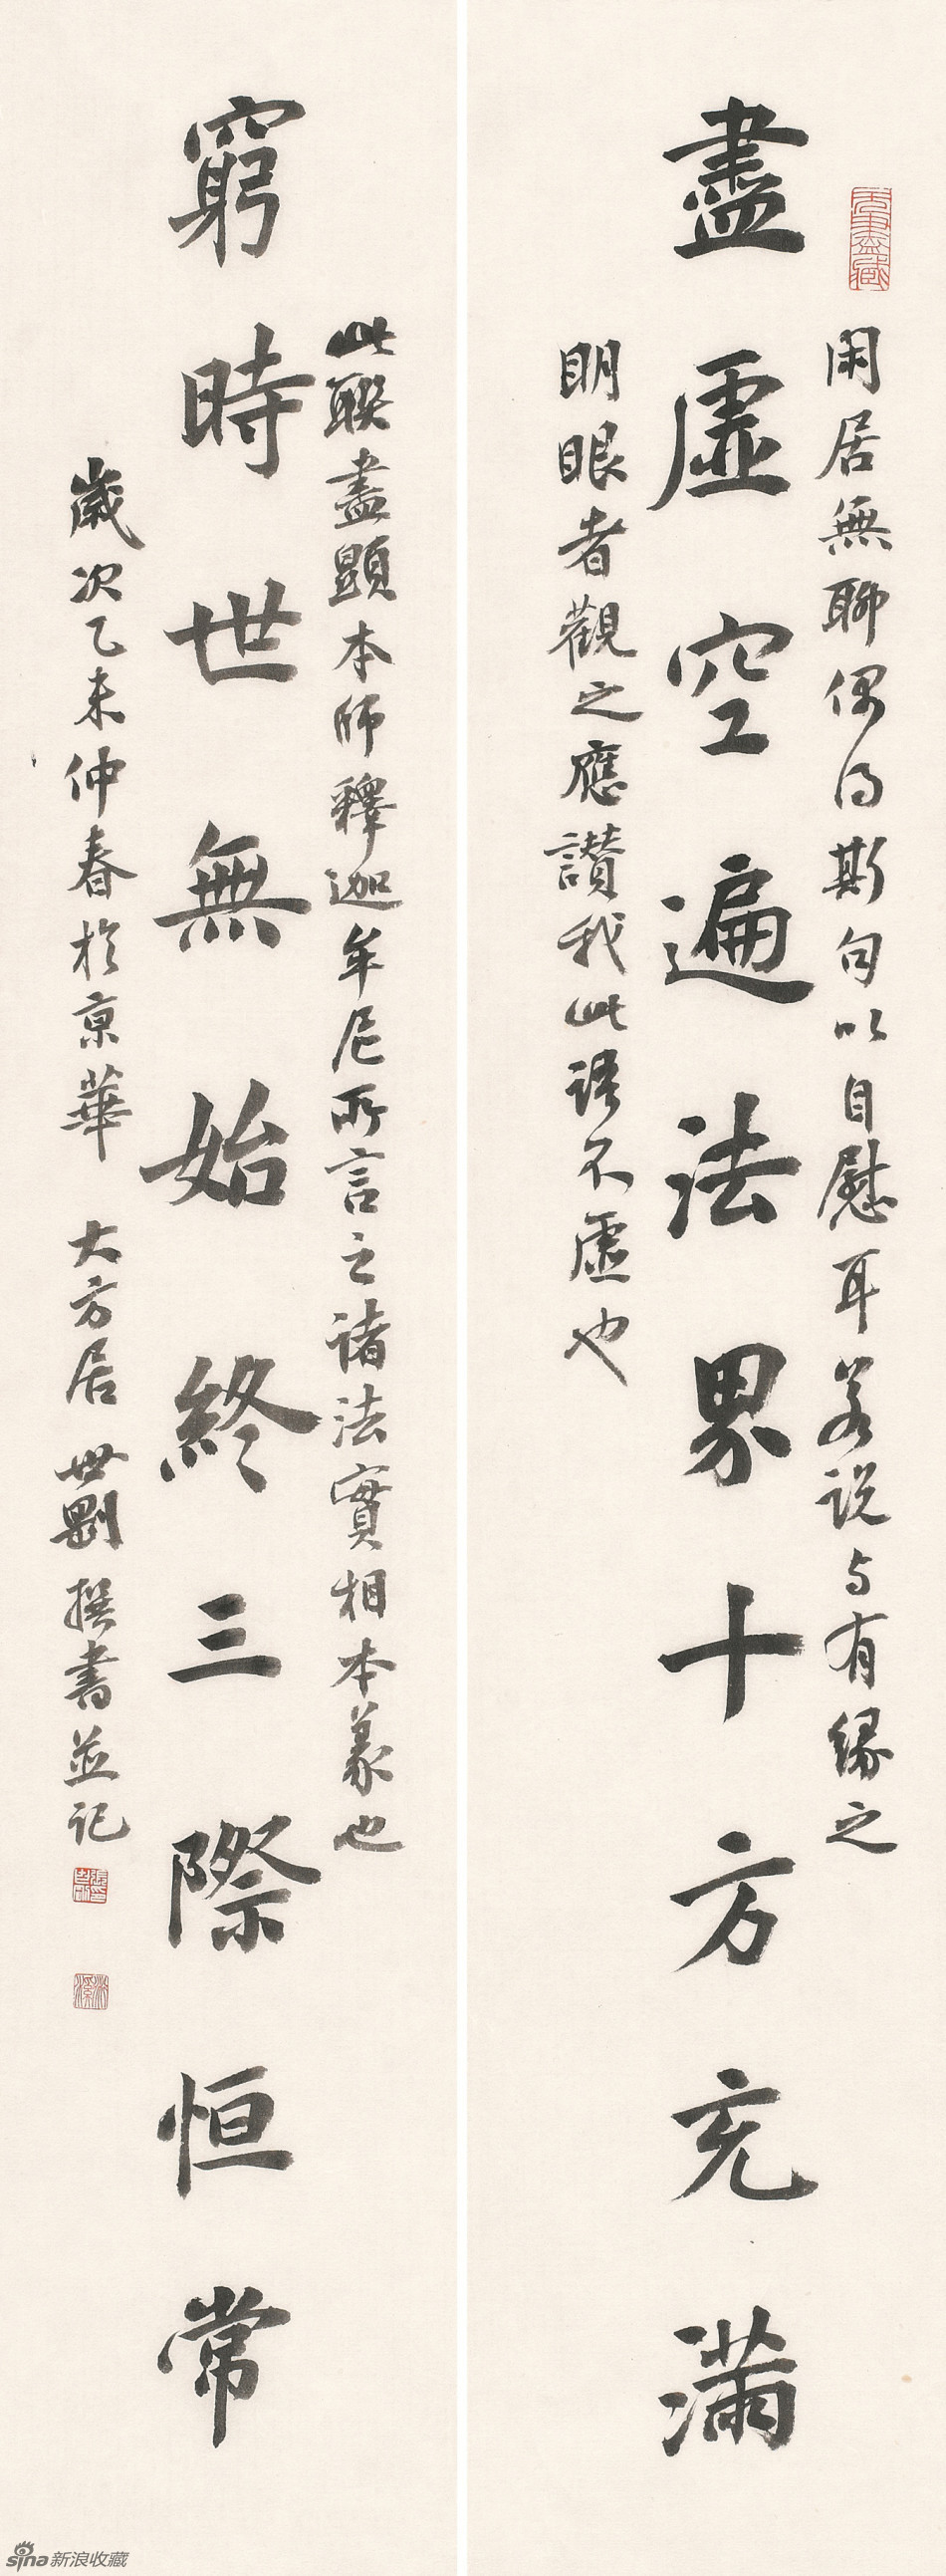 閑居無聊偶得斯句以自慰耳若说与有緣之
盡虛空遍法界十方充滿
明眼者觀之應讃我此語不虛也
此聯盡顯本師釋迦牟尼所言之諸法實相本義也
窮時世無始終三際恒常
歲次乙未仲春於京華 大方居 世剛撰書並記
sina新浪收藏